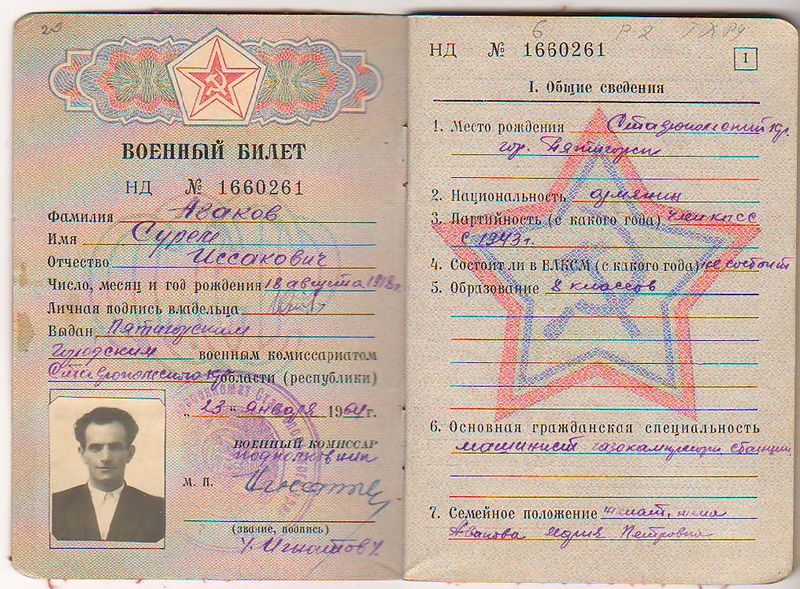 ВОЕННЫЙ БИЛЕТ
НД № 1660261
Фамилия Агаков
Имя Сурен
Отчество Иссакович
Число, месяц и год рождения 18 августа 1918 г.
Личная подпись владельца
Выдан Пятигорским
Городским военным комиссариатом
области (республики)
„23“ января 1964 г.
ВОЕННЫЙ КОМИССАР
подполковник
М. П.
(звание, подпись)
/Игнатов/
НД № 1660261
1
I. Общие сведения
1. Место рождения Ставропольский кр.
гор. Пятигорск
2. Национальность армянин
3. Партийность (с какого года) член КПСС
с 1943 г.
4. Состоит ли в ВЛКСМ (с какого года) не состоит
5. Образование 8 классов
6. Основная гражданская специальность
машинист станции
7. Семейное положение женат, жена
Петровна